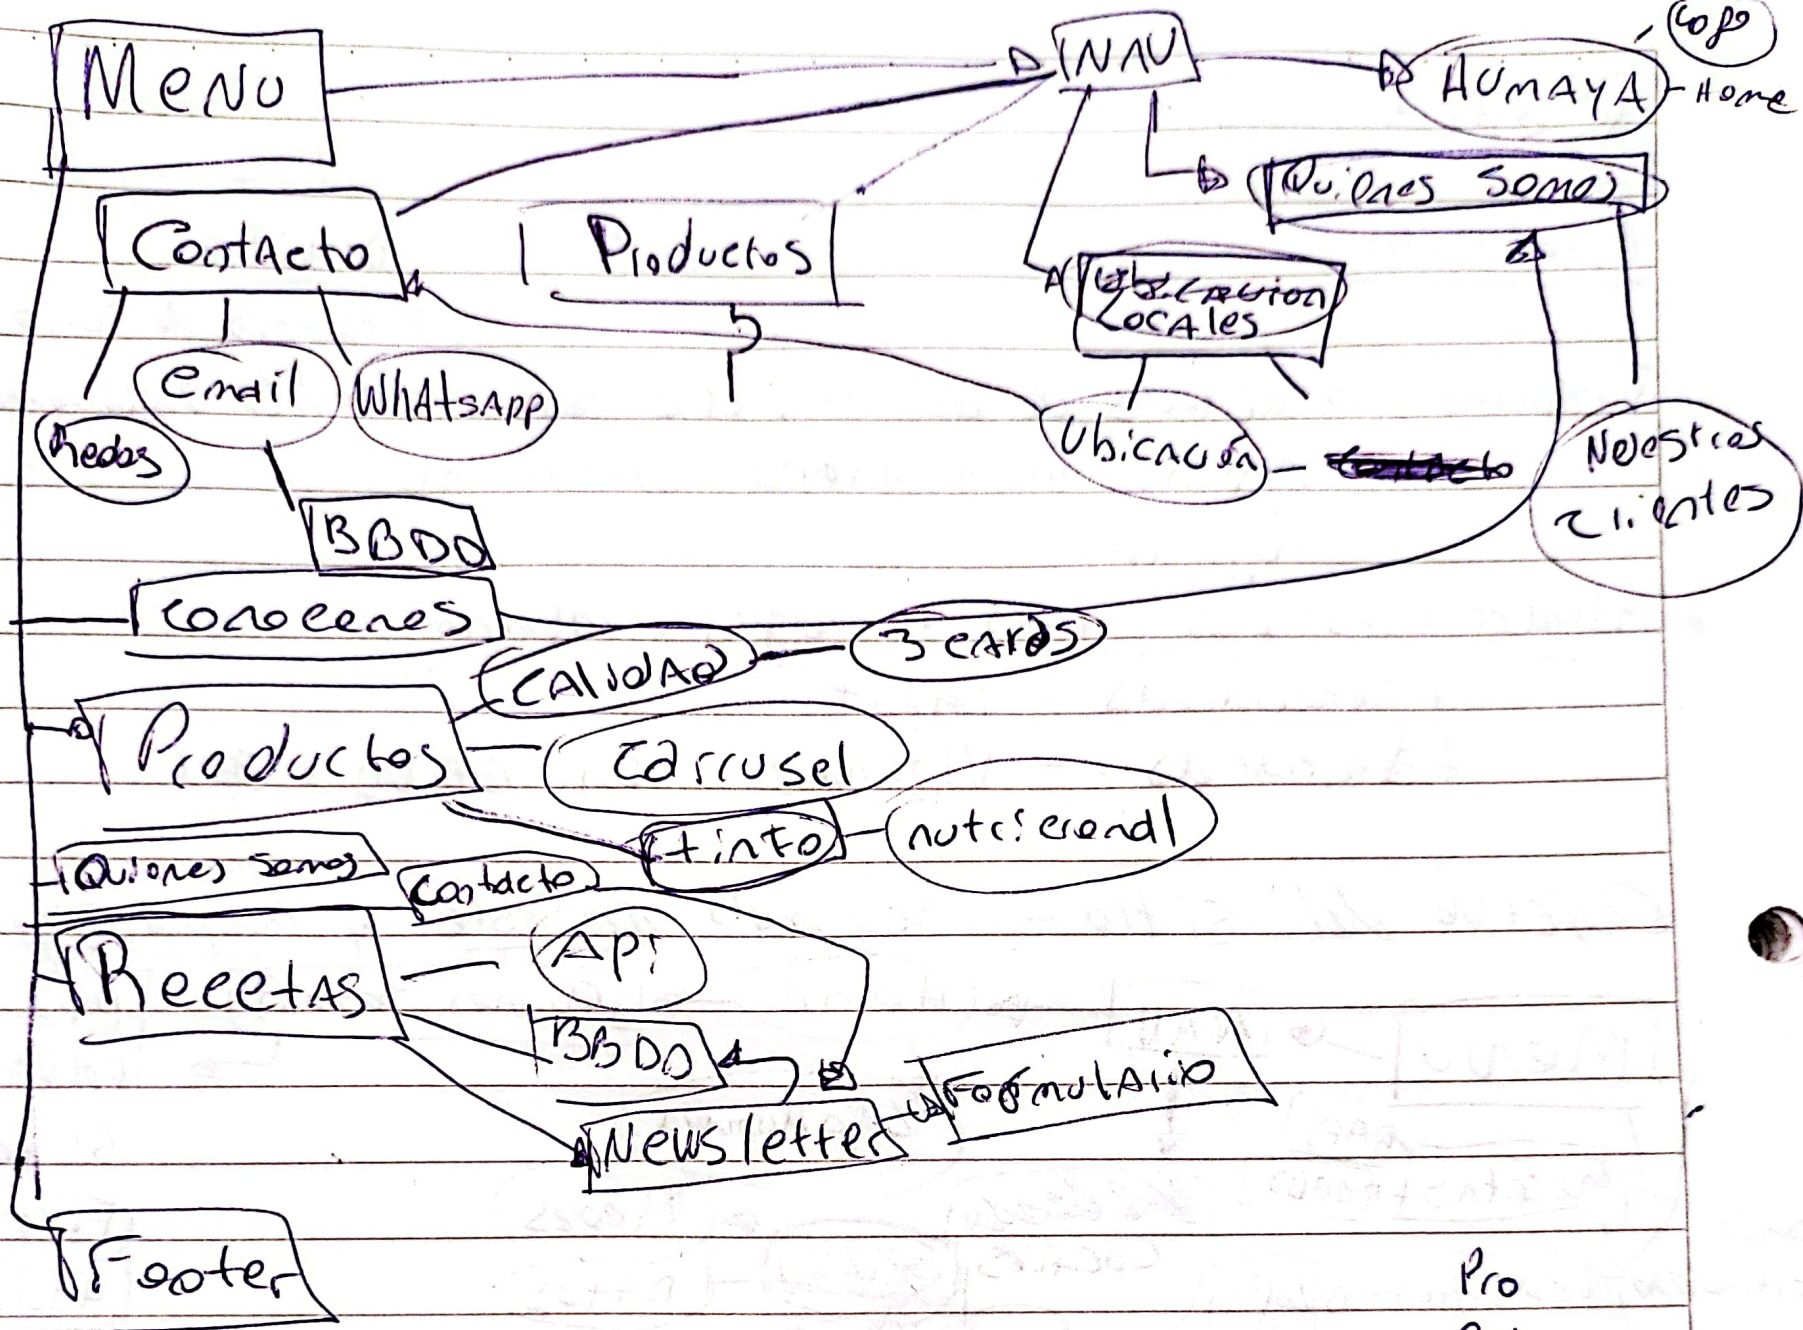 Menu
NAV
HUMAYA
Logo
Home
Quienes Somos
Contacto
Productos
Ubicacion
Locales
email
WhatsApp
Redes
Ubicación
Nuestros
clientes
BBDD
Conocenos
Calidad
3 cards
Productos
Carrusel
tinto
nutricional
Quienes somos
Contacto
Recetas
Api
BBDD
Newsletter
Formulario
Footer
Pro